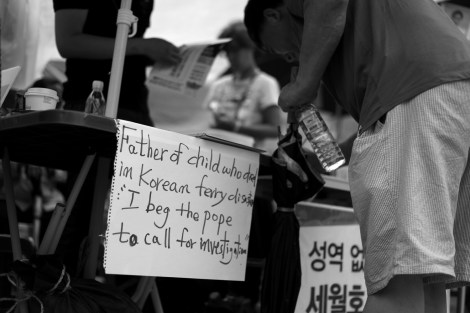 Father of child who died
in Korean ferry disaster
"I beg the pope
to call for investigation"
성역 없
세월호